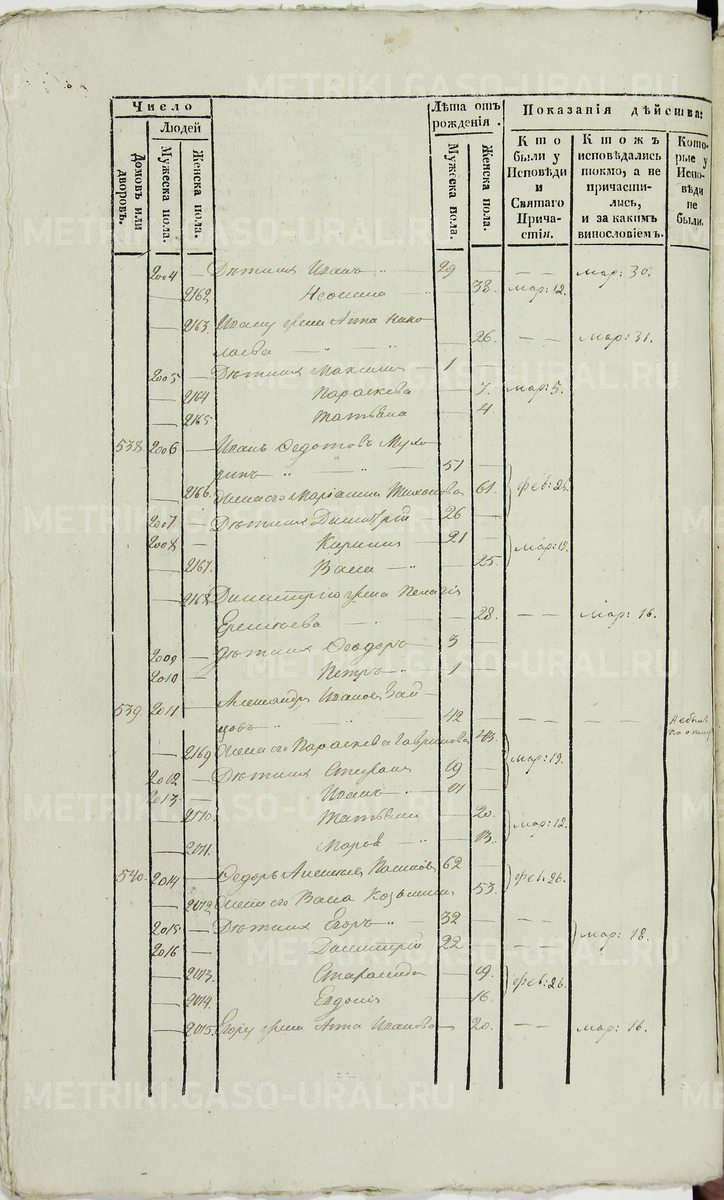 Число
Людей
Домовъ или дворовъ.
Мужеска пола.
Женска пола.
Лѣта отъ рожденія.
Мужеска пола.
Женска пола.
Показанія дѣйства:
Кто были у Исповѣди и Святаго Причастія.
Ктожъ исповѣдались токмо, а не причастились, и за какимъ винословіемъ.
Которые у Исповѣди не были.
2004 — Дѣти ихъ Иванъ — 29 — — — мар: 30.
— 2162 — 38. мар: 12.
— 2163. Ивану жена Анна Нико
лаева — — 26. — — мар: 31.
2005 — Дѣти ихъ Максимъ 1
— 2164 Параскева — 7. мар: 5.
— 2165 Татьяна — 4
538. 2006 — Иванъ Федотовъ Мухо
ринъ — — 51 —
— 2166. Жена его Тихонова 61. фев: 25.
2007 — Дѣти ихъ Димитрій — 26 —
2008 — 21 — мар: 19.
— 2167. Васса — 25
— 2168 Димитрію жена Пелагія
— 28. — — мар: 16.
2009 — Дѣти ихъ Ѳеодоръ — 3 —
2010 — Петръ — 1
539. 2011 — Александръ Ивановъ Зай
цовъ — — 42 — — — — —
— 2169 Жена его Параскева Гаврилова 43.
2012 — Дѣти ихъ Стефанъ 19 — мар: 19.
2013 — Иванъ — 17 —
— 2170. Татьяна — 20.
— 2171. Марѳа — 13. мар: 12.
540. 2014 — Ѳедоръ 62 — фев: 26.
— 2172 Жена его Васса Козьмина 53.
2015 — Дѣти ихъ Егоръ — 32 —
2016 — Димитрій 22 — — — мар: 18.
— 2173. — 19.
— 2174. Евдокія — 16. фев: 26.
— 2175. Егору жена Анна Иванова — 20. — — мар: 16.
METRIKI.GASO-URAL.RU